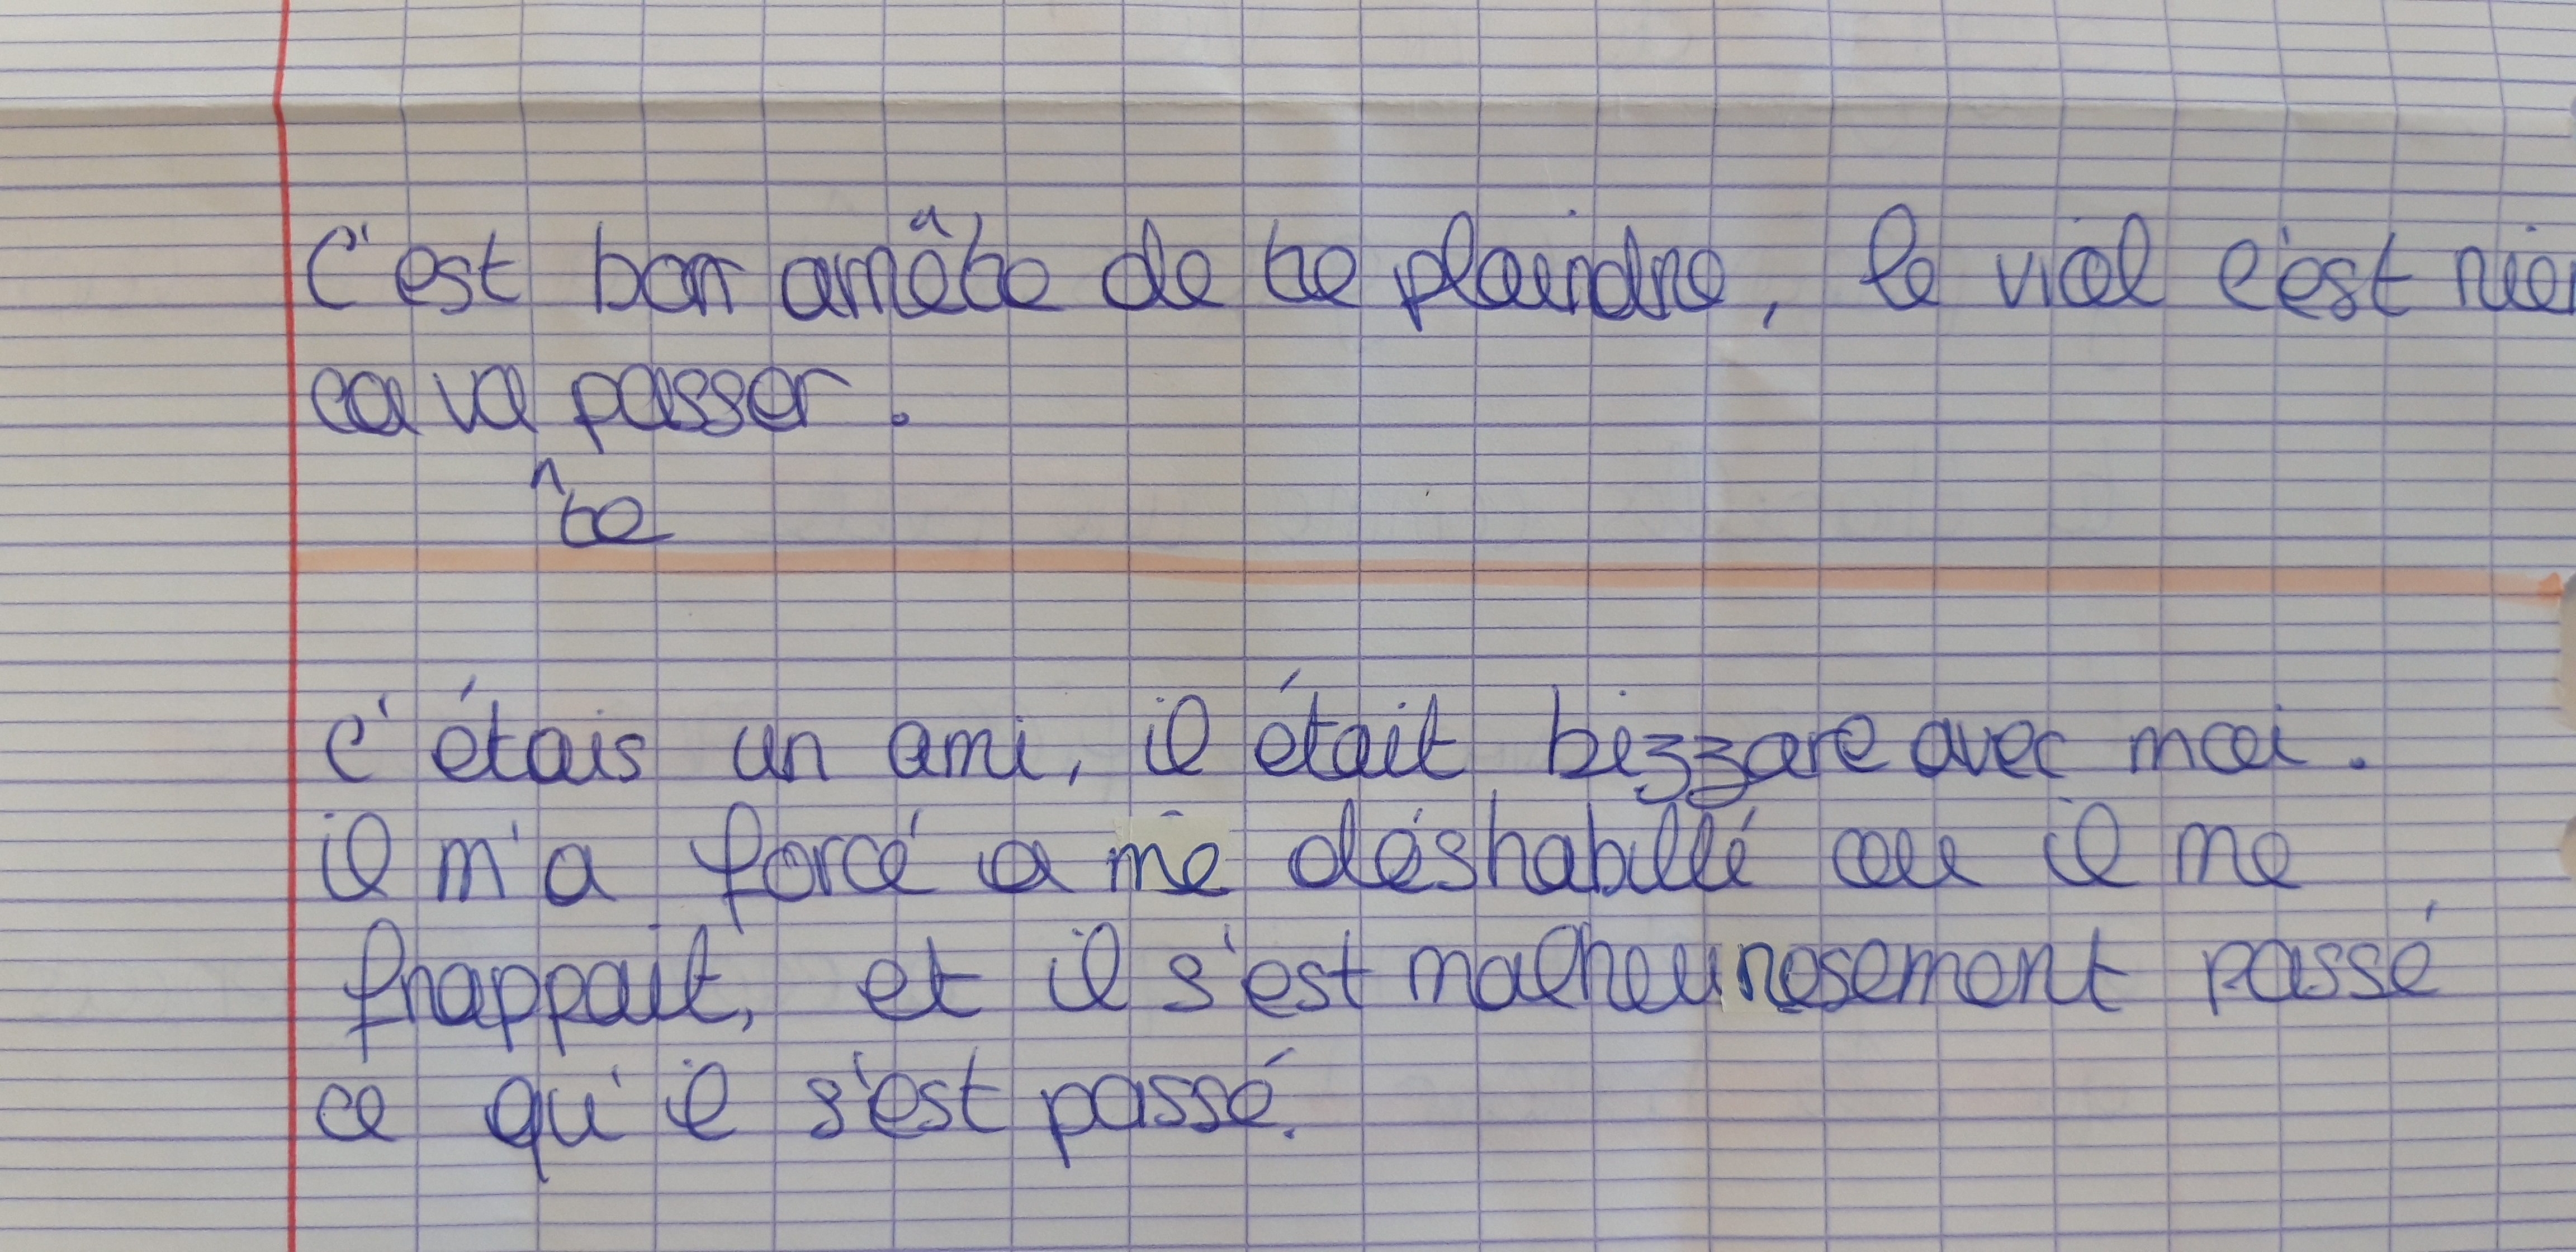 C'est bon arrête de te plaindre, le viol c'est rien
ca va te passer.
c'étais un ami, il était bizzare avec moi.
il m'a forcé a me déshabillé ou il me
frappait, et il s'est malheuresement passé
ce qu'il s'est passé.